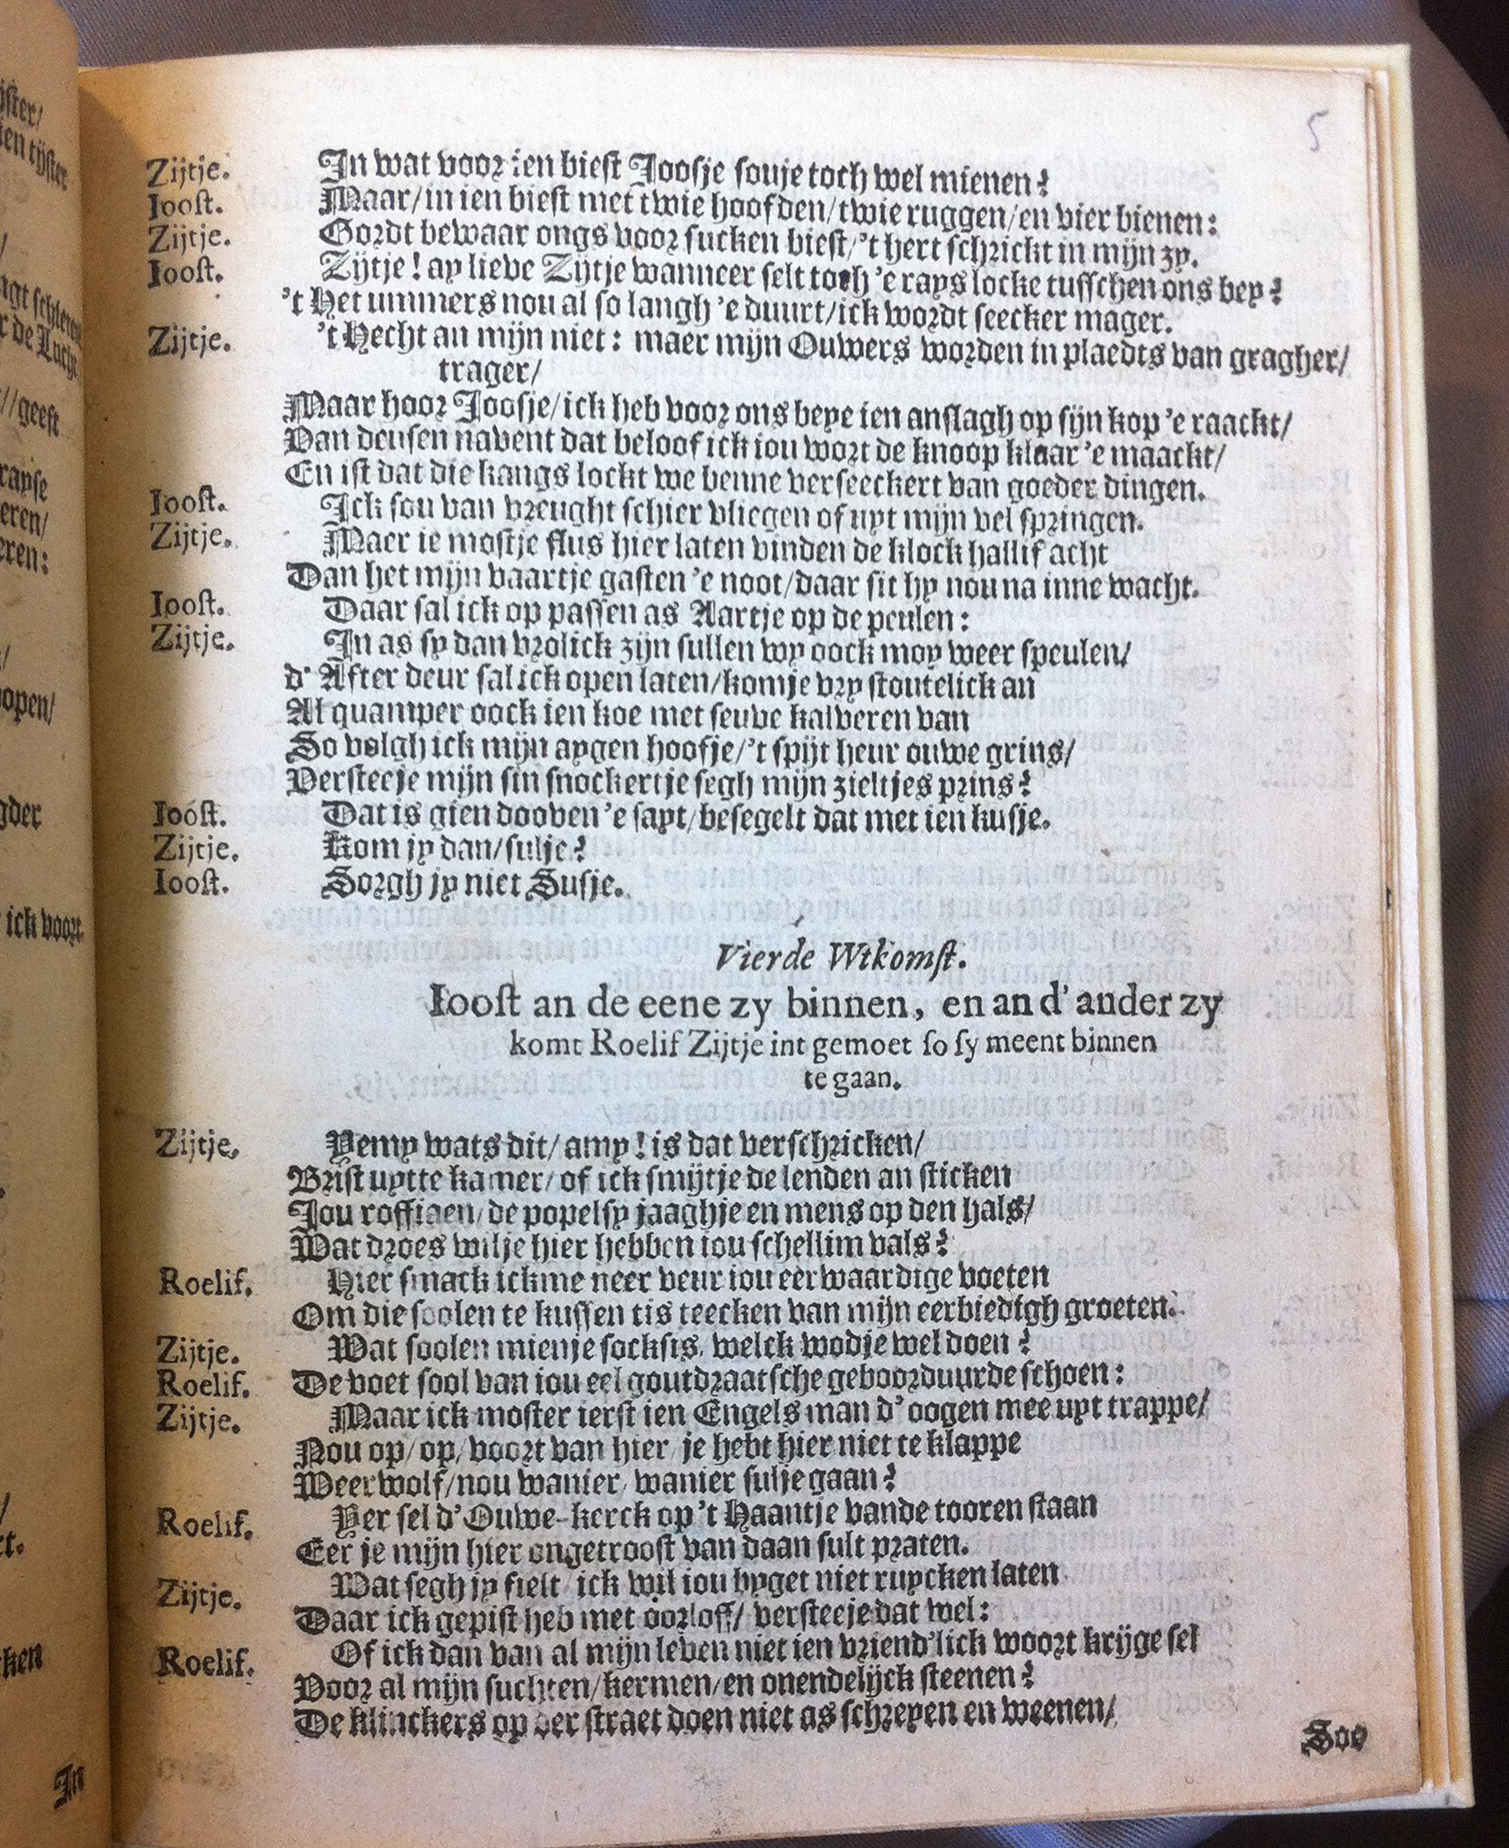 5
Zijtje. In wat voor ien biest Joosje souje toch wel mienen?
Ioost. Maar/in ien biest met twie hoofden/twie ruggen/en vier bienen:
Zijtje. Gordt bewaar ongs voor sucken biest/'t hert schrickt in mijn zy.
Ioost. Zijtje! ay lieve Zijtje wanneer selt toch 'e rays locke tusschen ons bey?
't Het ummers nou al so langh 'e duurt/ick wordt seecker mager.
Zijtje. 't Hecht an mijn niet: maer mijn Ouwers worden in plaedts van gragher/
trager/
Maar hoor Joosje/ick heb voor ons beye ien anslagh op sijn kop 'e raackt/
Van deusen navent dat beloof ick iou wort de knoop klaar 'e maackt/
En ist dat die kangs lockt we benne verseeckert van goeder dingen.
Ioost. Ick sou van vreught schier vliegen of uyt mijn vel springen.
Zijtje. Maer ie mostje flus hier laten vinden de klock hallif acht
Dan het mijn vaartje gasten 'e noot/daar sit hy nou na inne wacht.
Ioost. Daar sal ick op passen as Aartje op de peulen:
Zijtje. In as sy dan vrolick zijn sullen wy oock moy weer speulen/
d' After deur sal ick open laten/komje vry stoutelick an
Al quamper oock ien koe met seuve kalveren van
So volgh ick mijn aygen hoofje/'t spijt heur ouwe grins/
Versteeje mijn sin snockertje segh mijn zieltjes prins?
Ioost. Dat is gien dooven 'e sayt/besegelt dat met ien kusje.
Zijtje. Kom jy dan/sulje?
Ioost. Sorgh jy niet Susje.
Vierde Wtkomst.
Ioost an de eene zy binnen, en an d' ander zy
komt Roelif Zijtje int gemoet so sy meent binnen
te gaan.
Zijtje. Yemy wats dit/amy! is dat verschricken/
Brist uytte kamer/of ick smijtje de lenden an sticken
Jou roffiaen/de popelsy jaaghje en mens op den hals/
Wat droes wilje hier hebben iou schellim vals?
Roelif. Hier smack ickme neer veur iou eerwaardige voeten
Om die soolen te kussen tis teecken van mijn eerbiedigh groeten.
Zijtje. Wat soolen mienje socksis, welck wodje wel doen?
Roelif. De voet sool van iou eel goutdraatsche geboorduurde schoen:
Zijtje. Maar ick moster ierst ien Engels man d' oogen mee uyt trappe/
Nou op/op/voort van hier/je hebt hier niet te klappe
Weerwolf/nou wanier/wanier sulje gaan?
Roelif. Yer sel d' Ouwe-kerck op 't Haantje vande tooren staan
Eer je mijn hier ongetroost van daan sult praten.
Zijtje. Wat segh jy fielt/ick wil iou byget niet ruycken laten
Daar ick gepist heb met oorloff/versteeje dat wel:
Roelif. Of ick dan van al mijn leven niet ien vriend'lick woort krijge sel
Voor al mijn suchten/kermen/en onendelijck steenen?
De klinckers op der straet doen niet as schreyen en weenen/
Soo